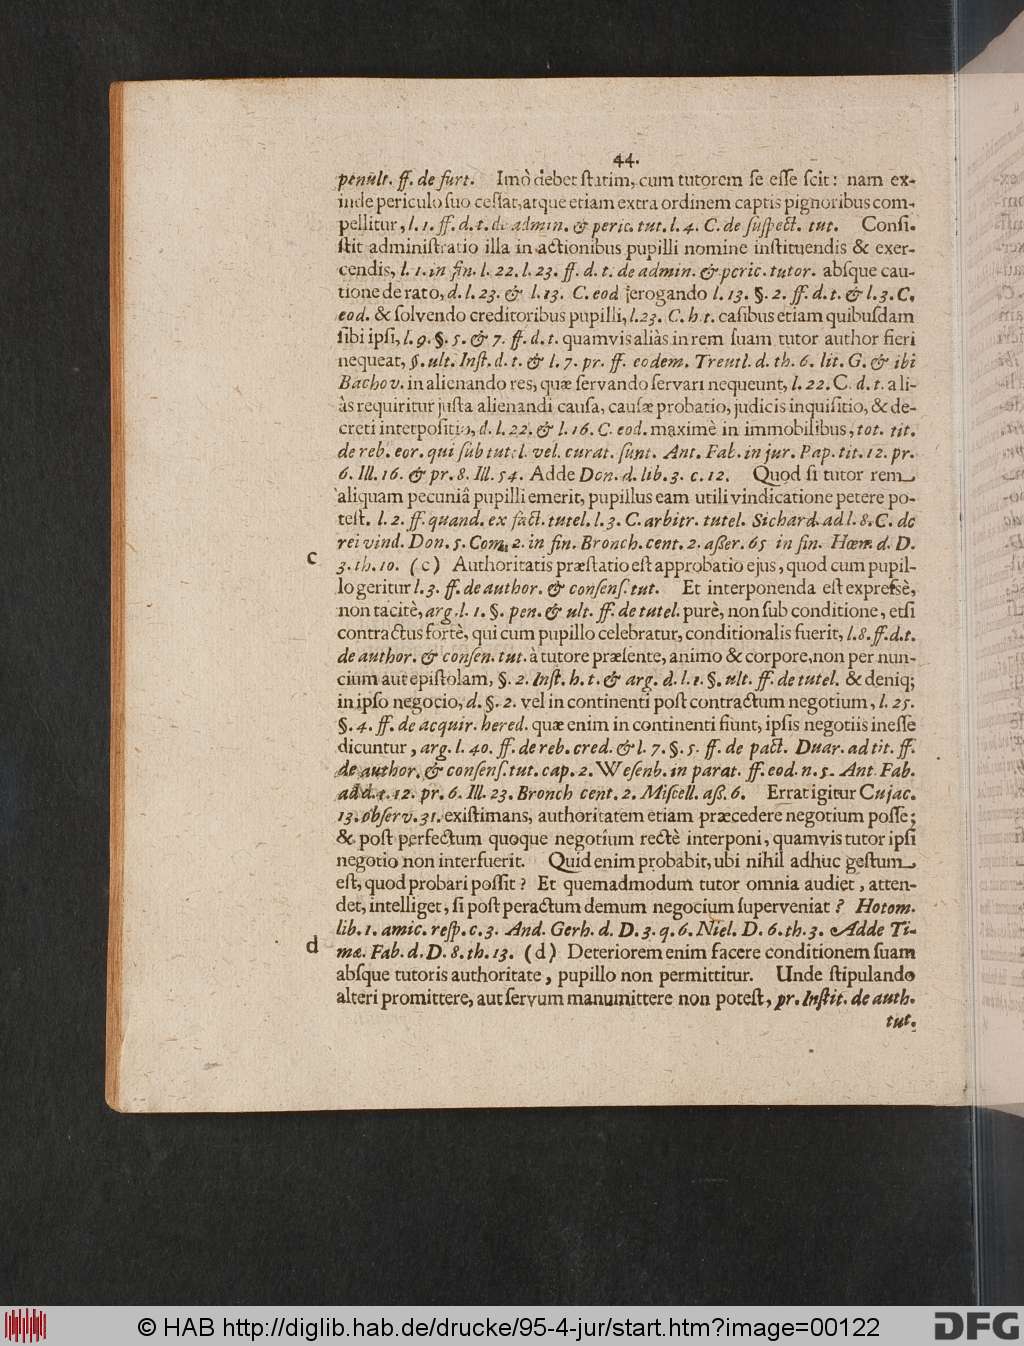 44.
penult. ff. de furt. Imò debet statim, cum tutorem se esse scit: nam ex-
inde periculo suo cessat, atque etiam extra ordinem captis pignoribus com-
pellitur, l. 1. ff. d. t. de admin. & peric. tut. l. 4. C. de suspect. tut. Consi-
stit administratio illa in actionibus pupilli nomine instituendis & exer-
cendis, l. 1. in fin. l. 22. l. 23. ff. d. t. de admin. & peric. tutor. absque cau-
tione de rato, d. l. 23. & l. 13. C. eod erogando l. 13. §. 2. ff. d. t. & l. 3. C.
eod. & solvendo creditoribus pupilli, l. 23. C. h. t. casibus etiam quibusdam
sibi ipsi, l. 9. §. 5. & 7. ff. d. t. quamvis aliàs in rem suam tutor author fieri
nequeat, §. ult. Inst. d. t. & l. 7. pr. ff. eodem. Treutl. d. th. 6. lit. G. & ibi
Bachov. in alienando res, quæ servando servari nequeunt, l. 22. C. d. t. ali-
às requiritur justa alienandi causa, causæ probatio, judicis inquisitio, & de-
creti interpositio, d. l. 22. & l. 16. C. eod. maximè in immobilibus, tot. tit.
de reb. eor. qui sub tutel. vel. curat. sunt. Ant. Fab. in jur. Pap. tit. 12. pr.
6. Ill. 16. & pr. 8. Ill. 54. Adde Don. d. lib. 3. c. 12. Quod si tutor rem
aliquam pecuniâ pupilli emerit, pupillus eam utili vindicatione petere po-
test. l. 2. ff. quand. ex fact. tutel. l. 3. C. arbitr. tutel. Sichard. ad l. 8. C. de
rei vind. Don. 5. Com. 2. in fin. Bronch. cent. 2. aßer. 65 in fin. Hœn. d. D.
c 3. th. 10. (c) Authoritatis præstatio est approbatio ejus, quod cum pupil-
lo geritur l. 3. ff. de author. & consens. tut. Et interponenda est expressè,
non tacitè, arg. l. 1. §. pen. & ult. ff. de tutel. purè, non sub conditione, etsi
contractus fortè, qui cum pupillo celebratur, conditionalis fuerit, l. 8. ff. d. t.
de author. & consen. tut. à tutore præsente, animo & corpore, non per nun-
cium aut epistolam, §. 2. Inst. h. t. & arg. d. l. 1. §. ult. ff. de tutel. & deniq;
in ipso negocio, d. §. 2. vel in continenti post contractum negotium, l. 25.
§. 4. ff. de acquir. hered. quæ enim in continenti fiunt, ipsis negotiis inesse
dicuntur, arg. l. 40. ff. de reb. cred. & l. 7. §. 5. ff. de pact. Duar. ad tit. ff.
de author. & consens. tut. cap. 2. Wesenb. in parat. ff. eod. n. 5. Ant. Fab.
ad d. t. 12. pr. 6. Ill. 23. Bronch cent. 2. Miscell. aß. 6. Errat igitur Cujac.
13. observ. 31. existimans, authoritatem etiam præcedere negotium posse;
& post perfectum quoque negotium rectè interponi, quamvis tutor ipsi
negotio non interfuerit. Quid enim probabit, ubi nihil adhuc gestum
est, quod probari possit? Et quemadmodum tutor omnia audiet, atten-
det, intelliget, si post peractum demum negocium superveniat? Hotom.
lib. 1. amic. resp. c. 3. And. Gerh. d. D. 3. q. 6. Niel. D. 6. th. 3. Adde Ti-
d mæ. Fab. d. D. 8. th. 13. (d) Deteriorem enim facere conditionem suam
absque tutoris authoritate, pupillo non permittitur. Unde stipulando
alteri promittere, aut servum manumittere non potest, pr. Instit. de auth.
tut.
© HAB http://diglib.hab.de/drucke/95-4-jur/start.htm?image=00122
DFG